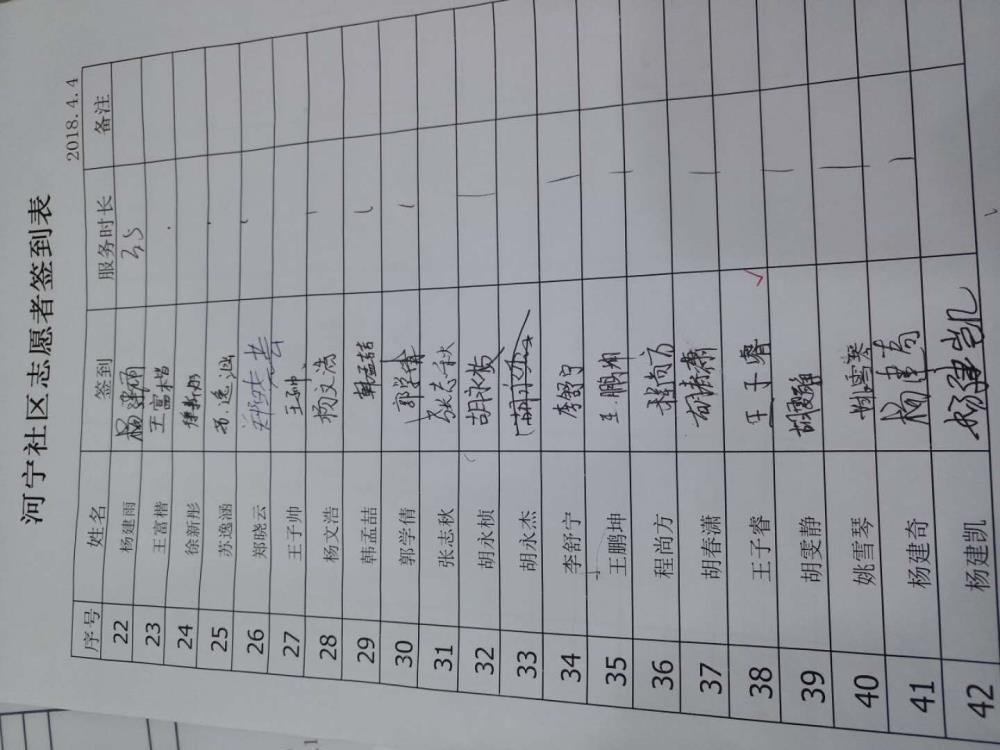 河宁社区志愿者签到表
2018.4.4
序号 姓名 签到 服务时长 备注
22 杨建雨 杨建雨 3.5
23 王富楷 王富楷
24 徐新彤 徐新彤
25 苏逸涵 苏逸涵
26 郑晓云 郑晓云
27 王子帅 王子帅
28 杨文浩 杨文浩
29 韩孟喆 韩孟喆
30 郭学倩 郭学倩
31 张志秋 张志秋
32 胡永桢 胡永桢
33 胡永杰 胡永杰
34 李舒宁 李舒宁
35 王鹏坤 王鹏坤
36 程尚方 程尚方
37 胡春潇 胡春潇
38 王子睿 王子睿
39 胡雯静 胡雯静
40 姚雪琴 姚雪琴
41 杨建奇 杨建奇
42 杨建凯 杨建凯